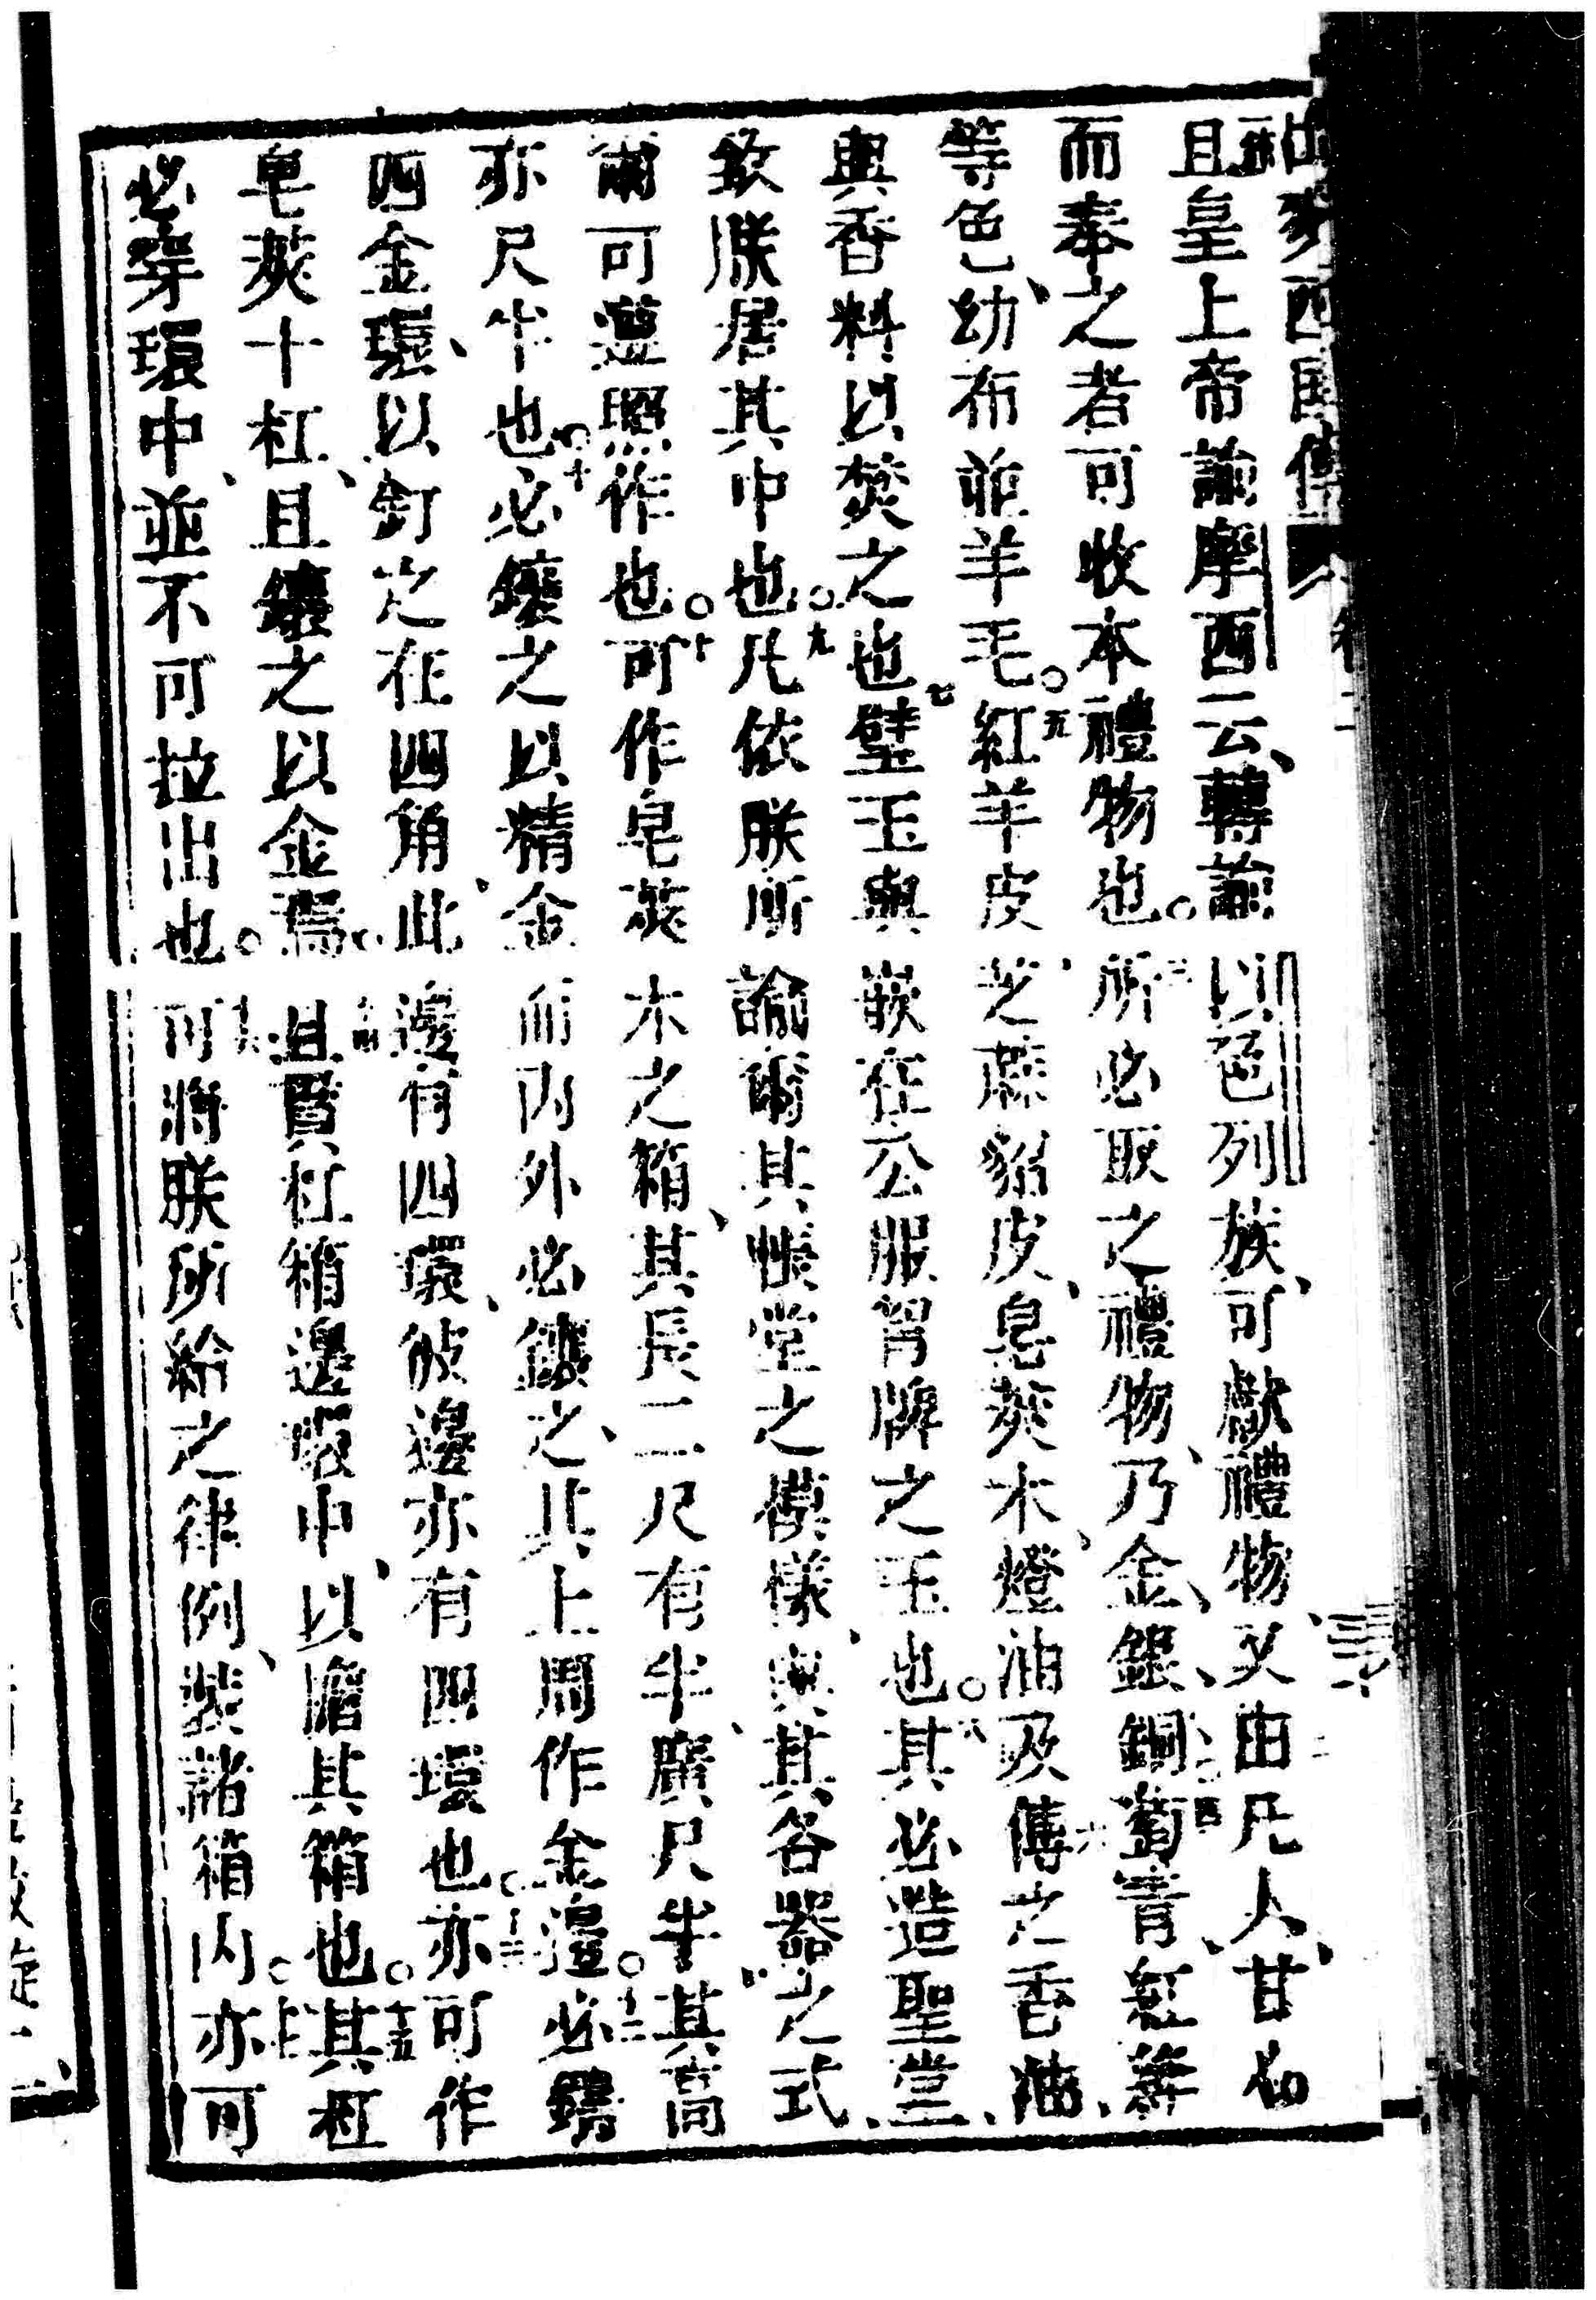 且皇上帝諭摩西云、轉諭以色列族、可獻禮物又由凡人、甘心
而奉之者可收本禮物也。三所必取之禮物、乃金、銀、銅、四葡青、紅、葬
等色、幼布並羊毛。五紅羊皮、芝蔴貂皮、皂莢木、六燈油及傅之香油、
與香料以焚之也七璧玉與嵌在公服胷牌之玉也。八其必造聖堂、
致朕居其中也。九凡依朕所諭爾其帳堂之模樣、與其各器之式、
爾可遵照作也。十可作皂莢木之箱、其長二尺有半、廣尺半、其高
亦尺半也。十一必鑲之以精金而內外必鑲之、其上周作金邊。十二必鑄
四金環、以釘之在四角、此邊有四環、彼邊亦有四環也。十三亦可作
皂莢十杠、且鑲之以金焉。十四且貫杠箱邊環中、以擔其箱也。十五其杠
必穿環中、並不可拉出也。十六可將朕所給之律例、裝諸箱內。十七亦可